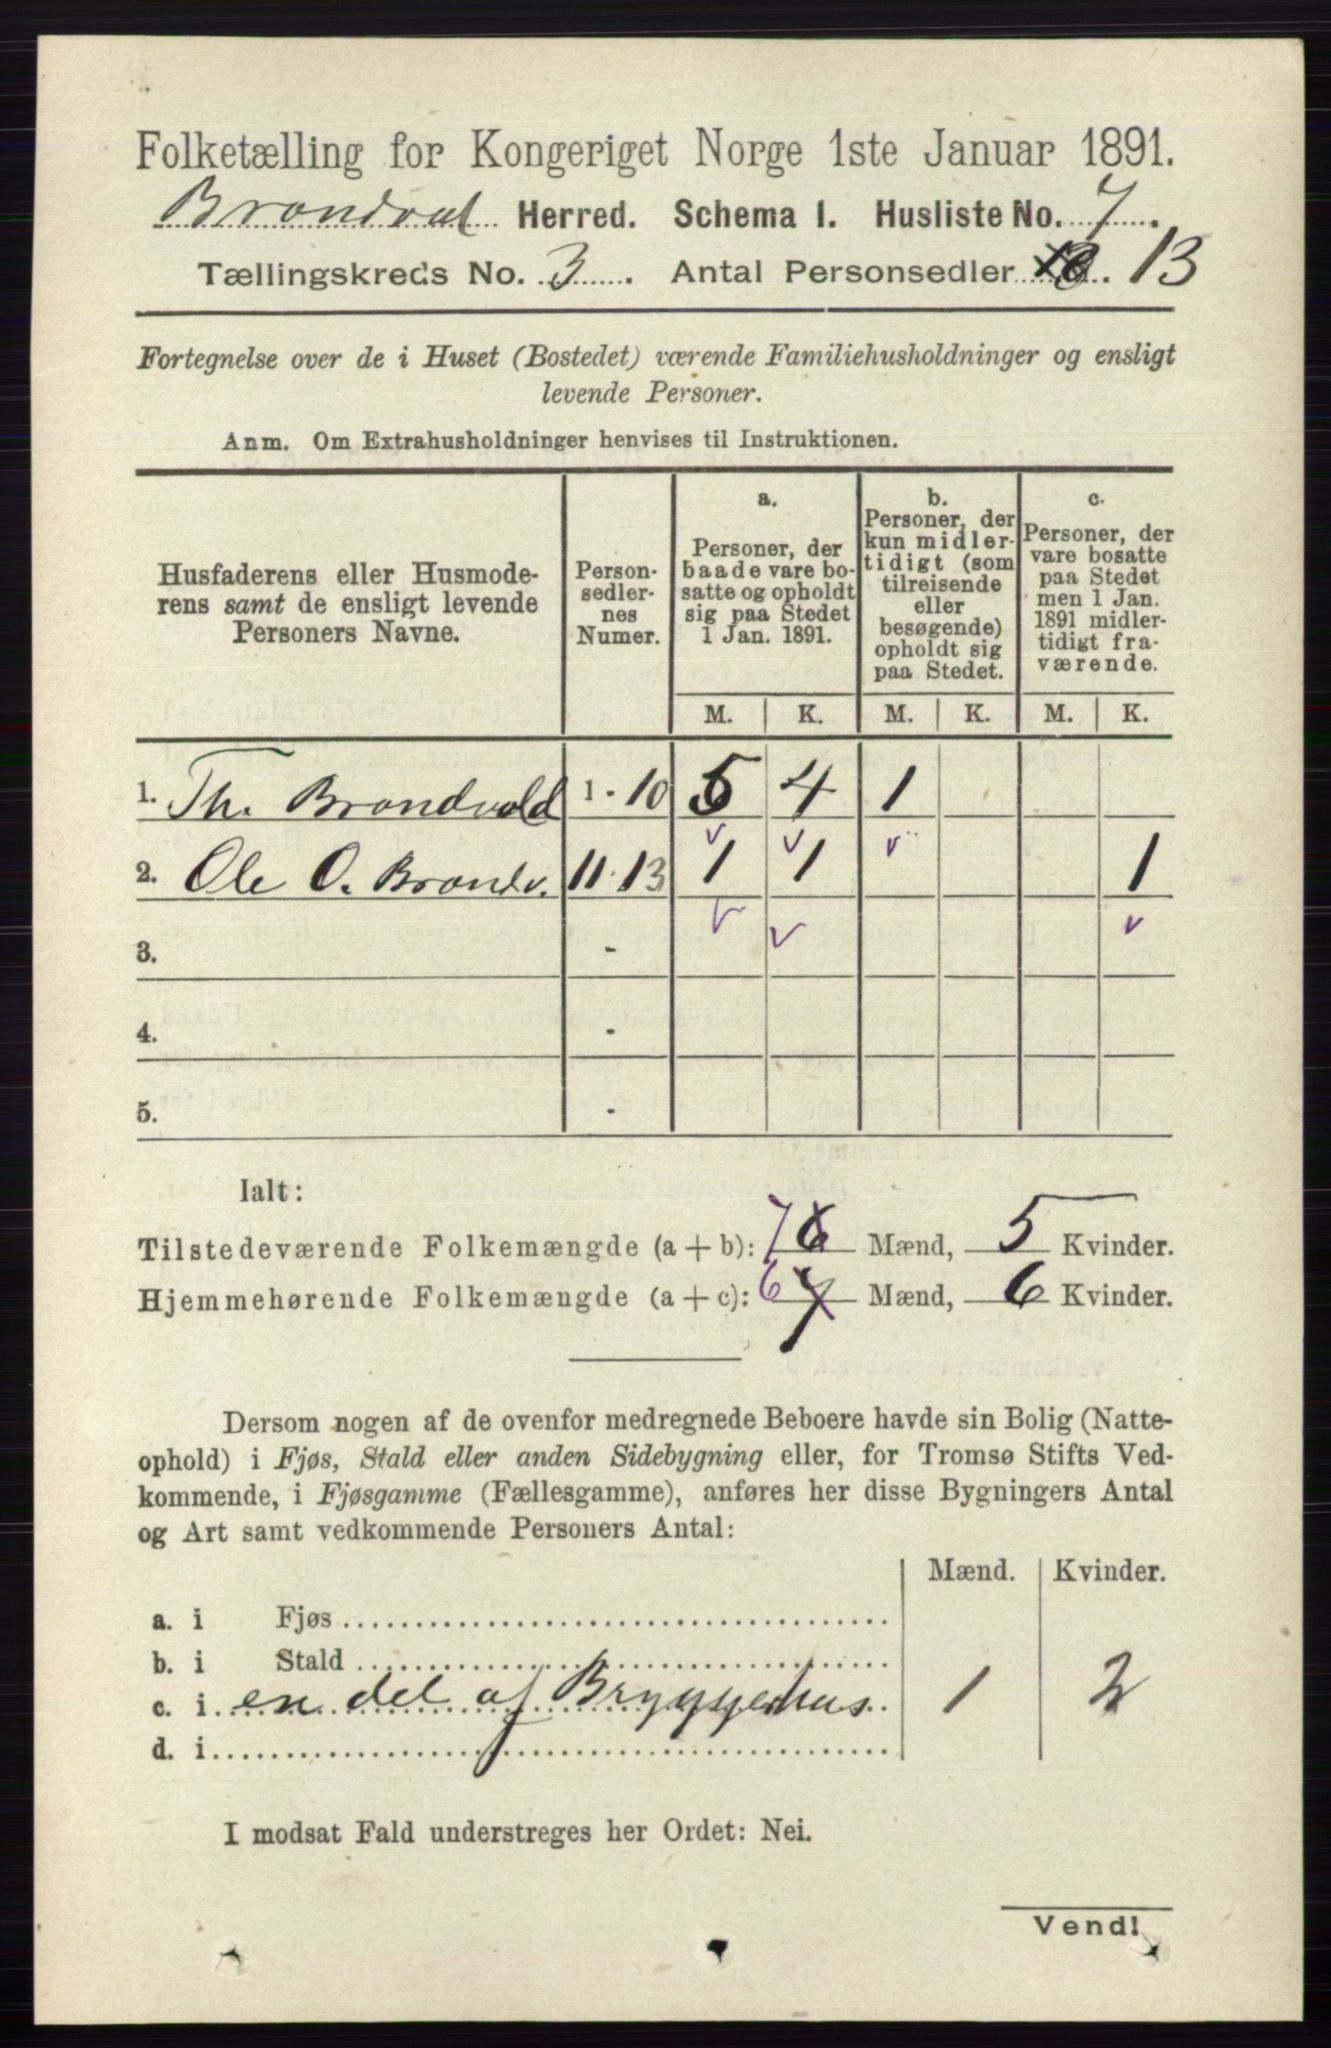 Folketælling for Kongeriget Norge 1ste Januar 1891.
Brandval Herred. Schema 1. Husliste No. 7.
Tællingskreds No. 3. Antal Personsedler 13
Fortegnelse over de i Huset (Bostedet) værende Familiehusholdninger og ensligt
levende Personer.
Anm. Om Extrahusholdninger henvises til Instruktionen.
Husfaderens eller Husmode-
rens samt de ensligt levende
Personers Navne.
Person-
sedler-
nes
Numer.
a.
Personer, der
baade vare bo-
satte og opholdt
sig paa Stedet
1 Jan. 1891.
b.
Personer, der
kun midler-
tidigt (som
tilreisende
eller
besøgende)
opholdt sig
paa Stedet.
c.
Personer, der
vare bosatte
paa Stedet
men 1 Jan.
1891 midler-
tidigt fra-
værende.
M. K. M. K. M. K.
1. Th. Brandvold 1 - 10 5 4 1
2. Ole O. Brandv. 11 - 13 1 1 1
3. -
4. -
5. -
Ialt:
Tilstedeværende Folkemængde (a + b): 7 6 Mænd, 5 Kvinder.
Hjemmehørende Folkemængde (a + c): 6 7 Mænd, 6 Kvinder.
Dersom nogen af de ovenfor medregnede Beboere havde sin Bolig (Natte-
ophold) i Fjøs, Stald eller anden Sidebygning eller, for Tromsø Stifts Ved-
kommende, i Fjøsgamme (Fællesgamme), anføres her disse Bygningers Antal
og Art samt vedkommende Personers Antal:
Mænd. Kvinder.
a. i Fjøs
b. i Stald
c. i en del af Bryggerhus 1 2
d. i
I modsat Fald understreges her Ordet: Nei.
Vend!